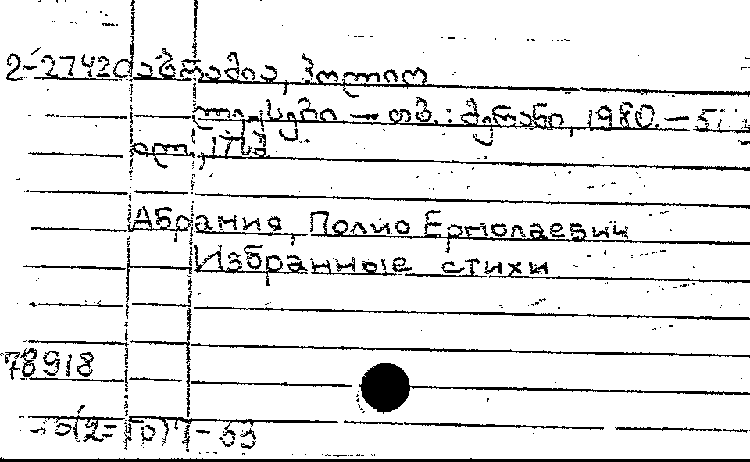 2-27420 აბრამია, პოლიო
ლექსები — თბ. : მერანი, 1980. — 51
ილ.
Абрамия, Полио Ермолаевич
Избранные стихи
78918